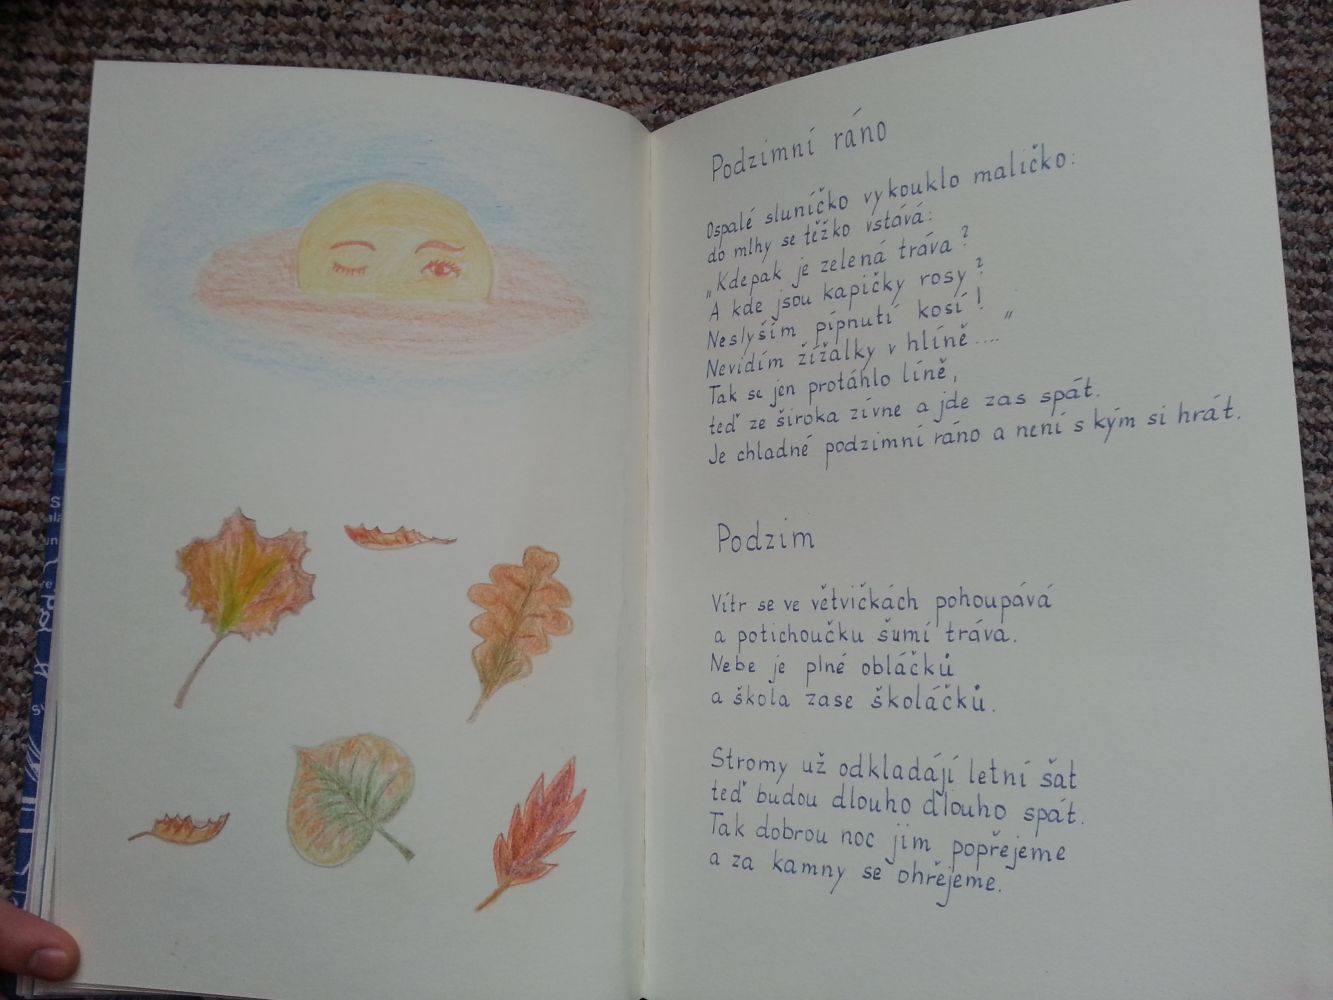 Podzimní ráno
Ospalé sluníčko vykouklo maličko:
do mlhy se těžko vstává:
„Kdepak je zelená tráva?
A kde jsou kapičky rosy?
Neslyším pípnutí kosí!
Nevidím žížalky v hlíně...."
Tak se jen protáhlo líně,
teď ze široka zívne a jde zas spát.
Je chladné podzimní ráno a není s kým si hrát.
Podzim
Vítr se ve větvičkách pohoupává
a potichoučku šumí tráva.
Nebe je plné obláčků
a škola zase školáčků.
Stromy už odkládájí letní šat
teď budou dlouho dlouho spát.
Tak dobrou noc jim popřejeme
a za kamny se ohřejeme.